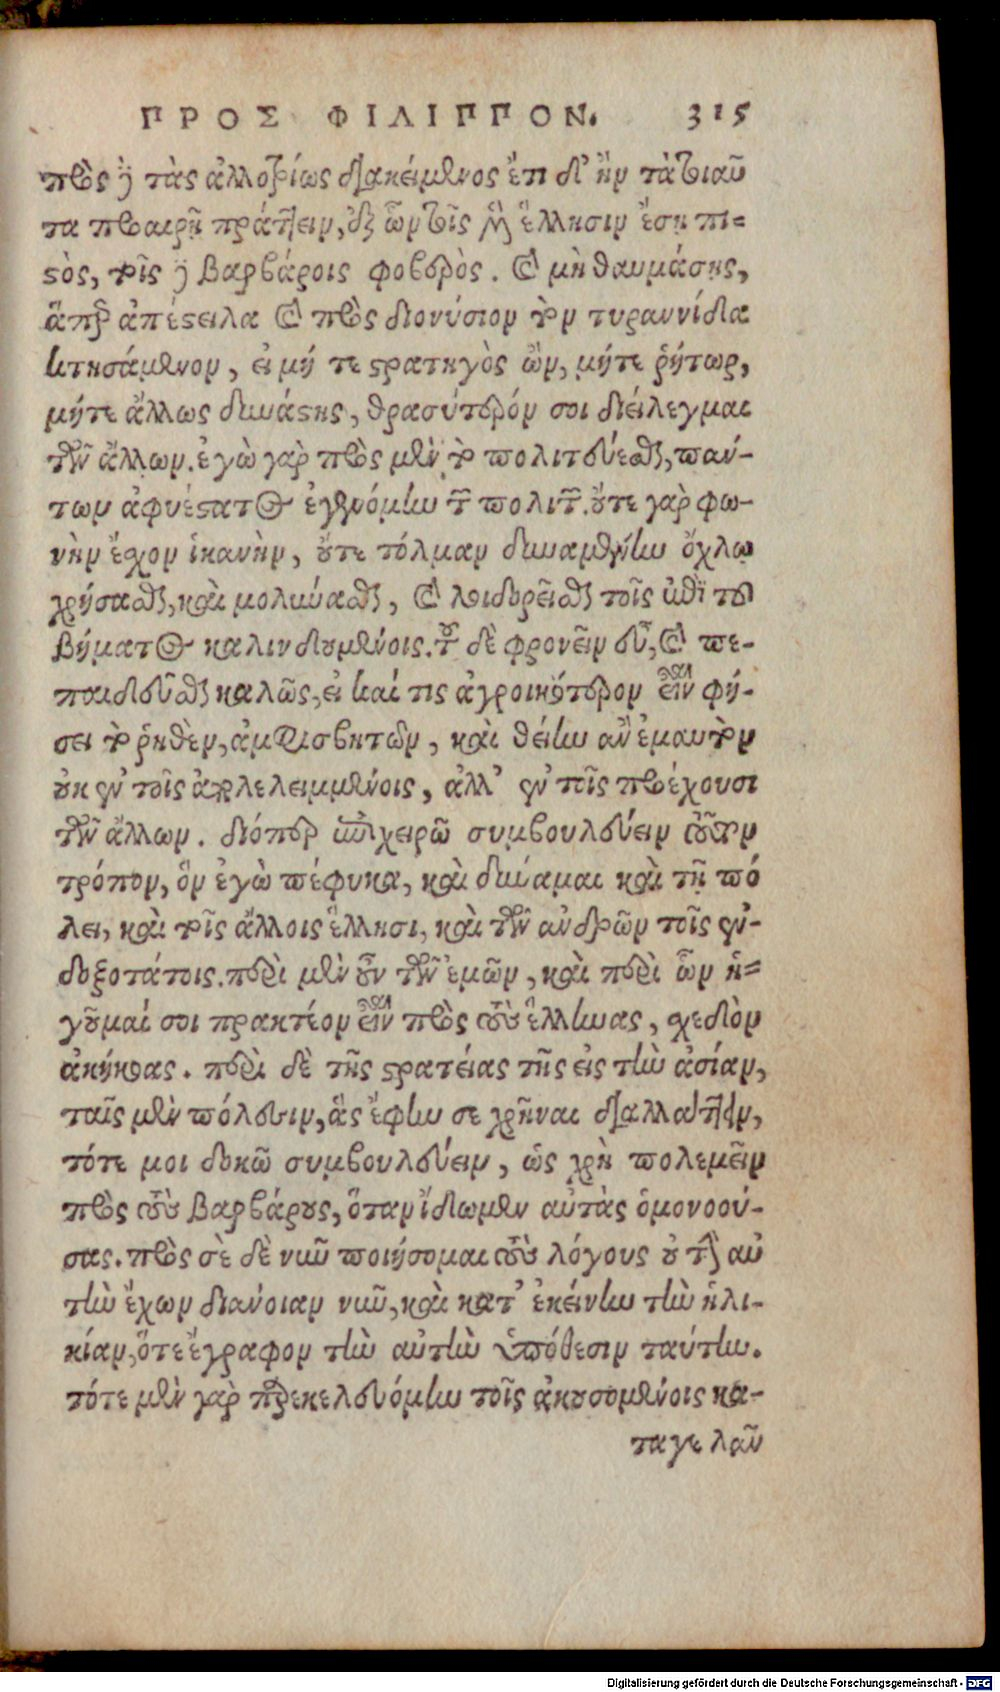 ΠΡΟΣ ΦΙΛΙΠΠΟΝ. 315
πρὸς δὲ τὰς ἀλλοτρίως διακείμενος ἔτι δι' ἣν τὰ τοιαῦ
τα προαιρῇ πράττειν, ἐξ ὧν τοῖς μὲν ἕλλησιν ἔσῃ πι-
στὸς, τοῖς δὲ βαρβάροις φοβερὸς. καὶ μὴ θαυμάσῃς,
ἅπερ ἀπέστειλα καὶ πρὸς διονύσιον τὴν τυραννίδα
κτησάμενον, εἰ μή τε στρατηγὸς ὢν, μήτε ῥήτωρ,
μήτε ἄλλως δυνάστης, θρασύτερόν σοι διείλεγμαι
τῶν ἄλλων. ἐγὼ γὰρ πρὸς μὲν τὸ πολιτεύεσθαι, πάν-
των ἀφυέστατος ἐγενόμην τῶν πολιτῶν. οὔτε γὰρ φω-
νὴν ἔχον ἱκανὴν, οὔτε τόλμαν δυναμένην ὄχλῳ
χρῆσθαι, καὶ μολύνεσθαι, καὶ λοιδορεῖσθαι τοῖς ἐπὶ τοῦ
βήματος καλινδουμένοις. τοῦ δὲ φρονεῖν εὖ, καὶ πε-
παιδεῦσθαι καλῶς, εἰ καί τις ἀγροικότερον εἶναι φή-
σει τὸ ῥηθὲν, ἀμφισβητῶν, καὶ θείην ἂν ἐμαυτὸν
οὐκ ἐν τοῖς ἀπολελειμμένοις, ἀλλ' ἐν τοῖς προέχουσι
τῶν ἄλλων. διόπερ ἐπιχειρῶ συμβουλεύειν τοῦτον
τρόπον, ὃν ἐγὼ πέφυκα, καὶ δύναμαι καὶ τῇ πό
λει, καὶ τοῖς ἄλλοις ἕλλησι, καὶ τῶν ἀνδρῶν τοῖς ἐν-
δοξοτάτοις. περὶ μὲν οὖν τῶν ἐμῶν, καὶ περὶ ὧν ἡ-
γοῦμαί σοι πρακτέον εἶναι πρὸς τοὺς ἕλληνας, σχεδὸν
ἀκήκοας. περὶ δὲ τῆς στρατείας τῆς εἰς τὴν ἀσίαν,
ταῖς μὲν πόλεσιν, ἃς ἔφην σε χρῆναι διαλλάττειν,
τότε μοι δοκῶ συμβουλεύειν, ὡς χρὴ πολεμεῖν
πρὸς τοὺς βαρβάρους, ὅταν ἴδωμεν αὐτὰς ὁμονοού-
σας. πρὸς σὲ δὲ νῦν ποιήσομαι τοὺς λόγους οὐ τὴν αὐ
τὴν ἔχων διάνοιαν νῦν, καὶ κατ' ἐκείνην τὴν ἡλι-
κίαν, ὅτε ἔγραφον τὴν αὐτὴν ὑπόθεσιν ταύτην.
τότε μὲν γὰρ παρεκελευόμην τοῖς ἀκουσομένοις κα-
ταγελᾶν
Digitalisierung gefördert durch die Deutsche Forschungsgemeinschaft - DFG